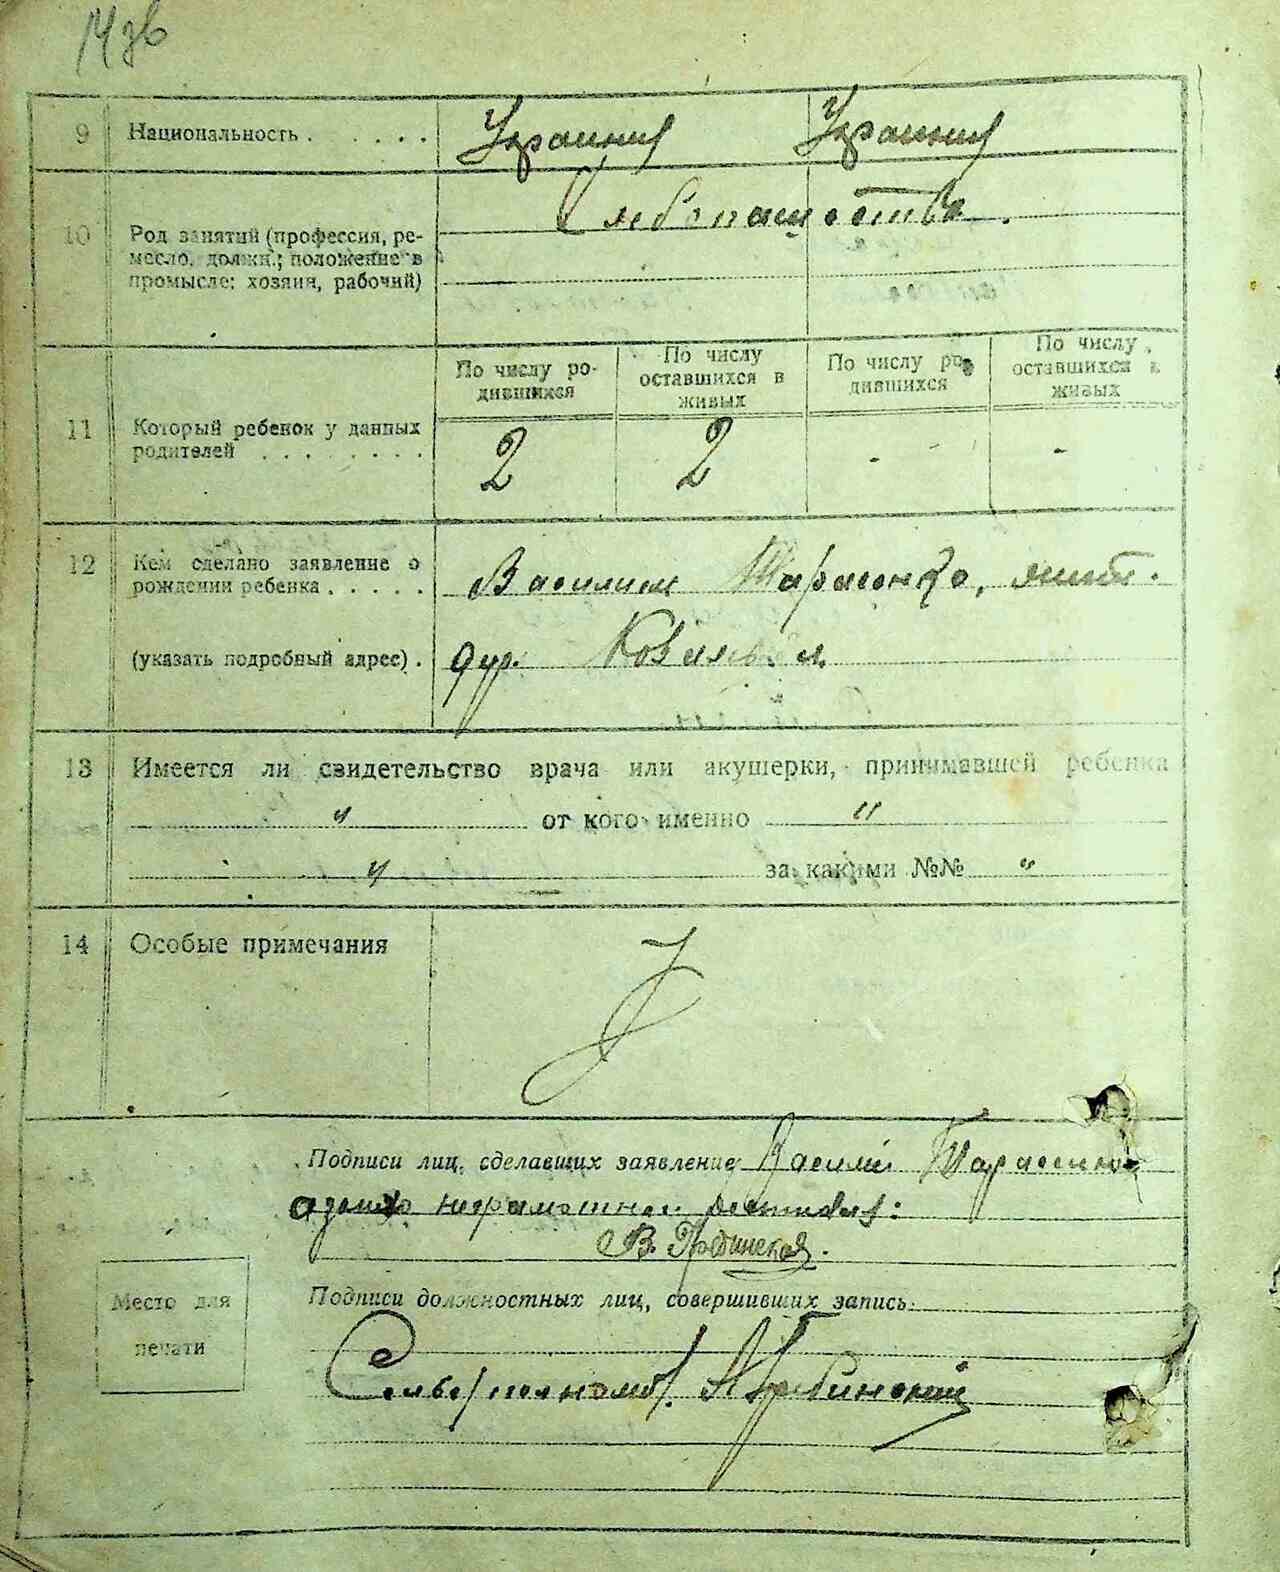 9 Национальность . . . . . Украинец Украинец
10 Род занятий (профессия, ре-
месло, должн.; положение в
промысле: хозяин, рабочий)
Хлебопашество.
По числу ро-
дившихся
По числу
оставшихся в
живых
По числу ро-
дившихся
По числу
оставшихся в
живых
11 Который ребенок у данных
родителей . . . . . . . .
2 2 - -
12 Кем сделано заявление о
рождении ребенка . . . . .
Василием Тарасенко, жит.
(указать подробный адрес) . дер.
13 Имеется ли свидетельство врача или акушерки, принимавшей ребенка
" от кого именно "
" за какими №№ "
14 Особые примечания
Подписи лиц, сделавших заявление Василий Тарасенко
а за неграмотного расписался:
В. Грабинская.
Место для
печати
Подписи должностных лиц, совершивших запись:
Грабинский